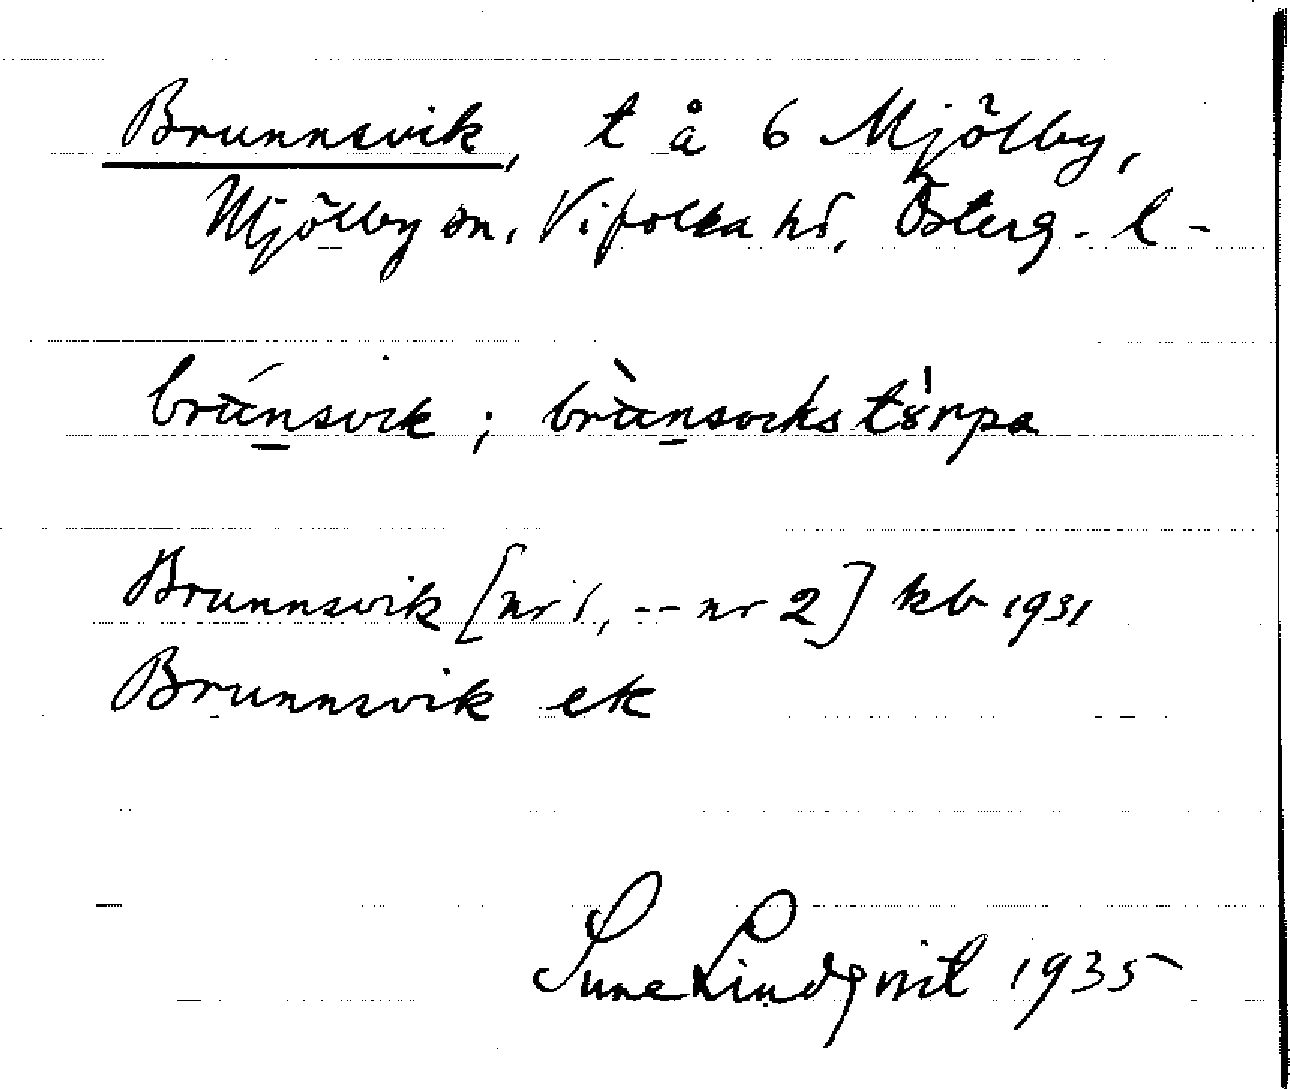 Brunnsvik, t å 6 Mjölby,
Mjölby sn, Vifolka hd, Österg. l-
brúnsvik; brùnsviks tȣ̍rpa
Brunnsvik [nr 1, -- nr 2] kb 1931
Brunnsvik ek
Sune Lindqvist 1935